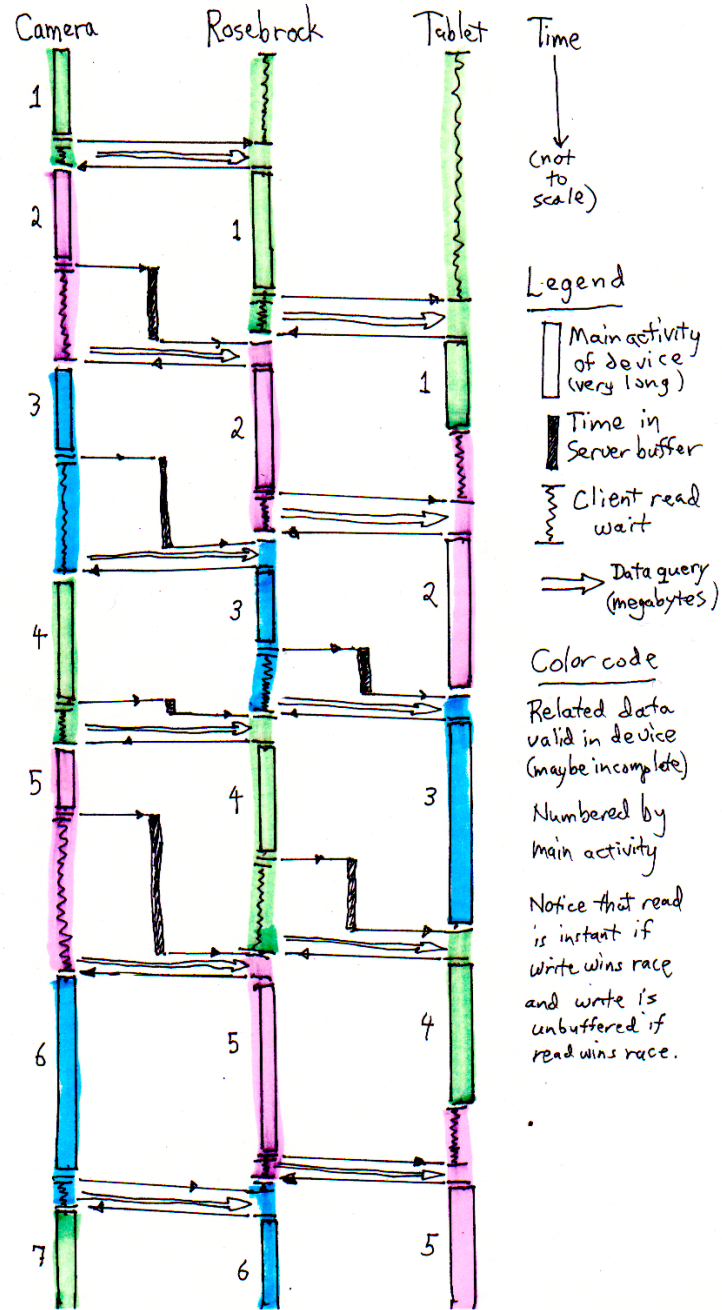 Camera
Rosebrock
Tablet
Time
(not
to
scale)
1
2
3
4
5
6
7
1
2
3
4
5
6
1
2
3
4
5
Legend
Main activity
of device
(very long)
Time in
Server buffer
Client read
wait
Data query
(megabytes)
Color code
Related data
valid in device
(maybe incomplete)
Numbered by
main activity
Notice that read
is instant if
write wins race
and write is
unbuffered if
read wins race.